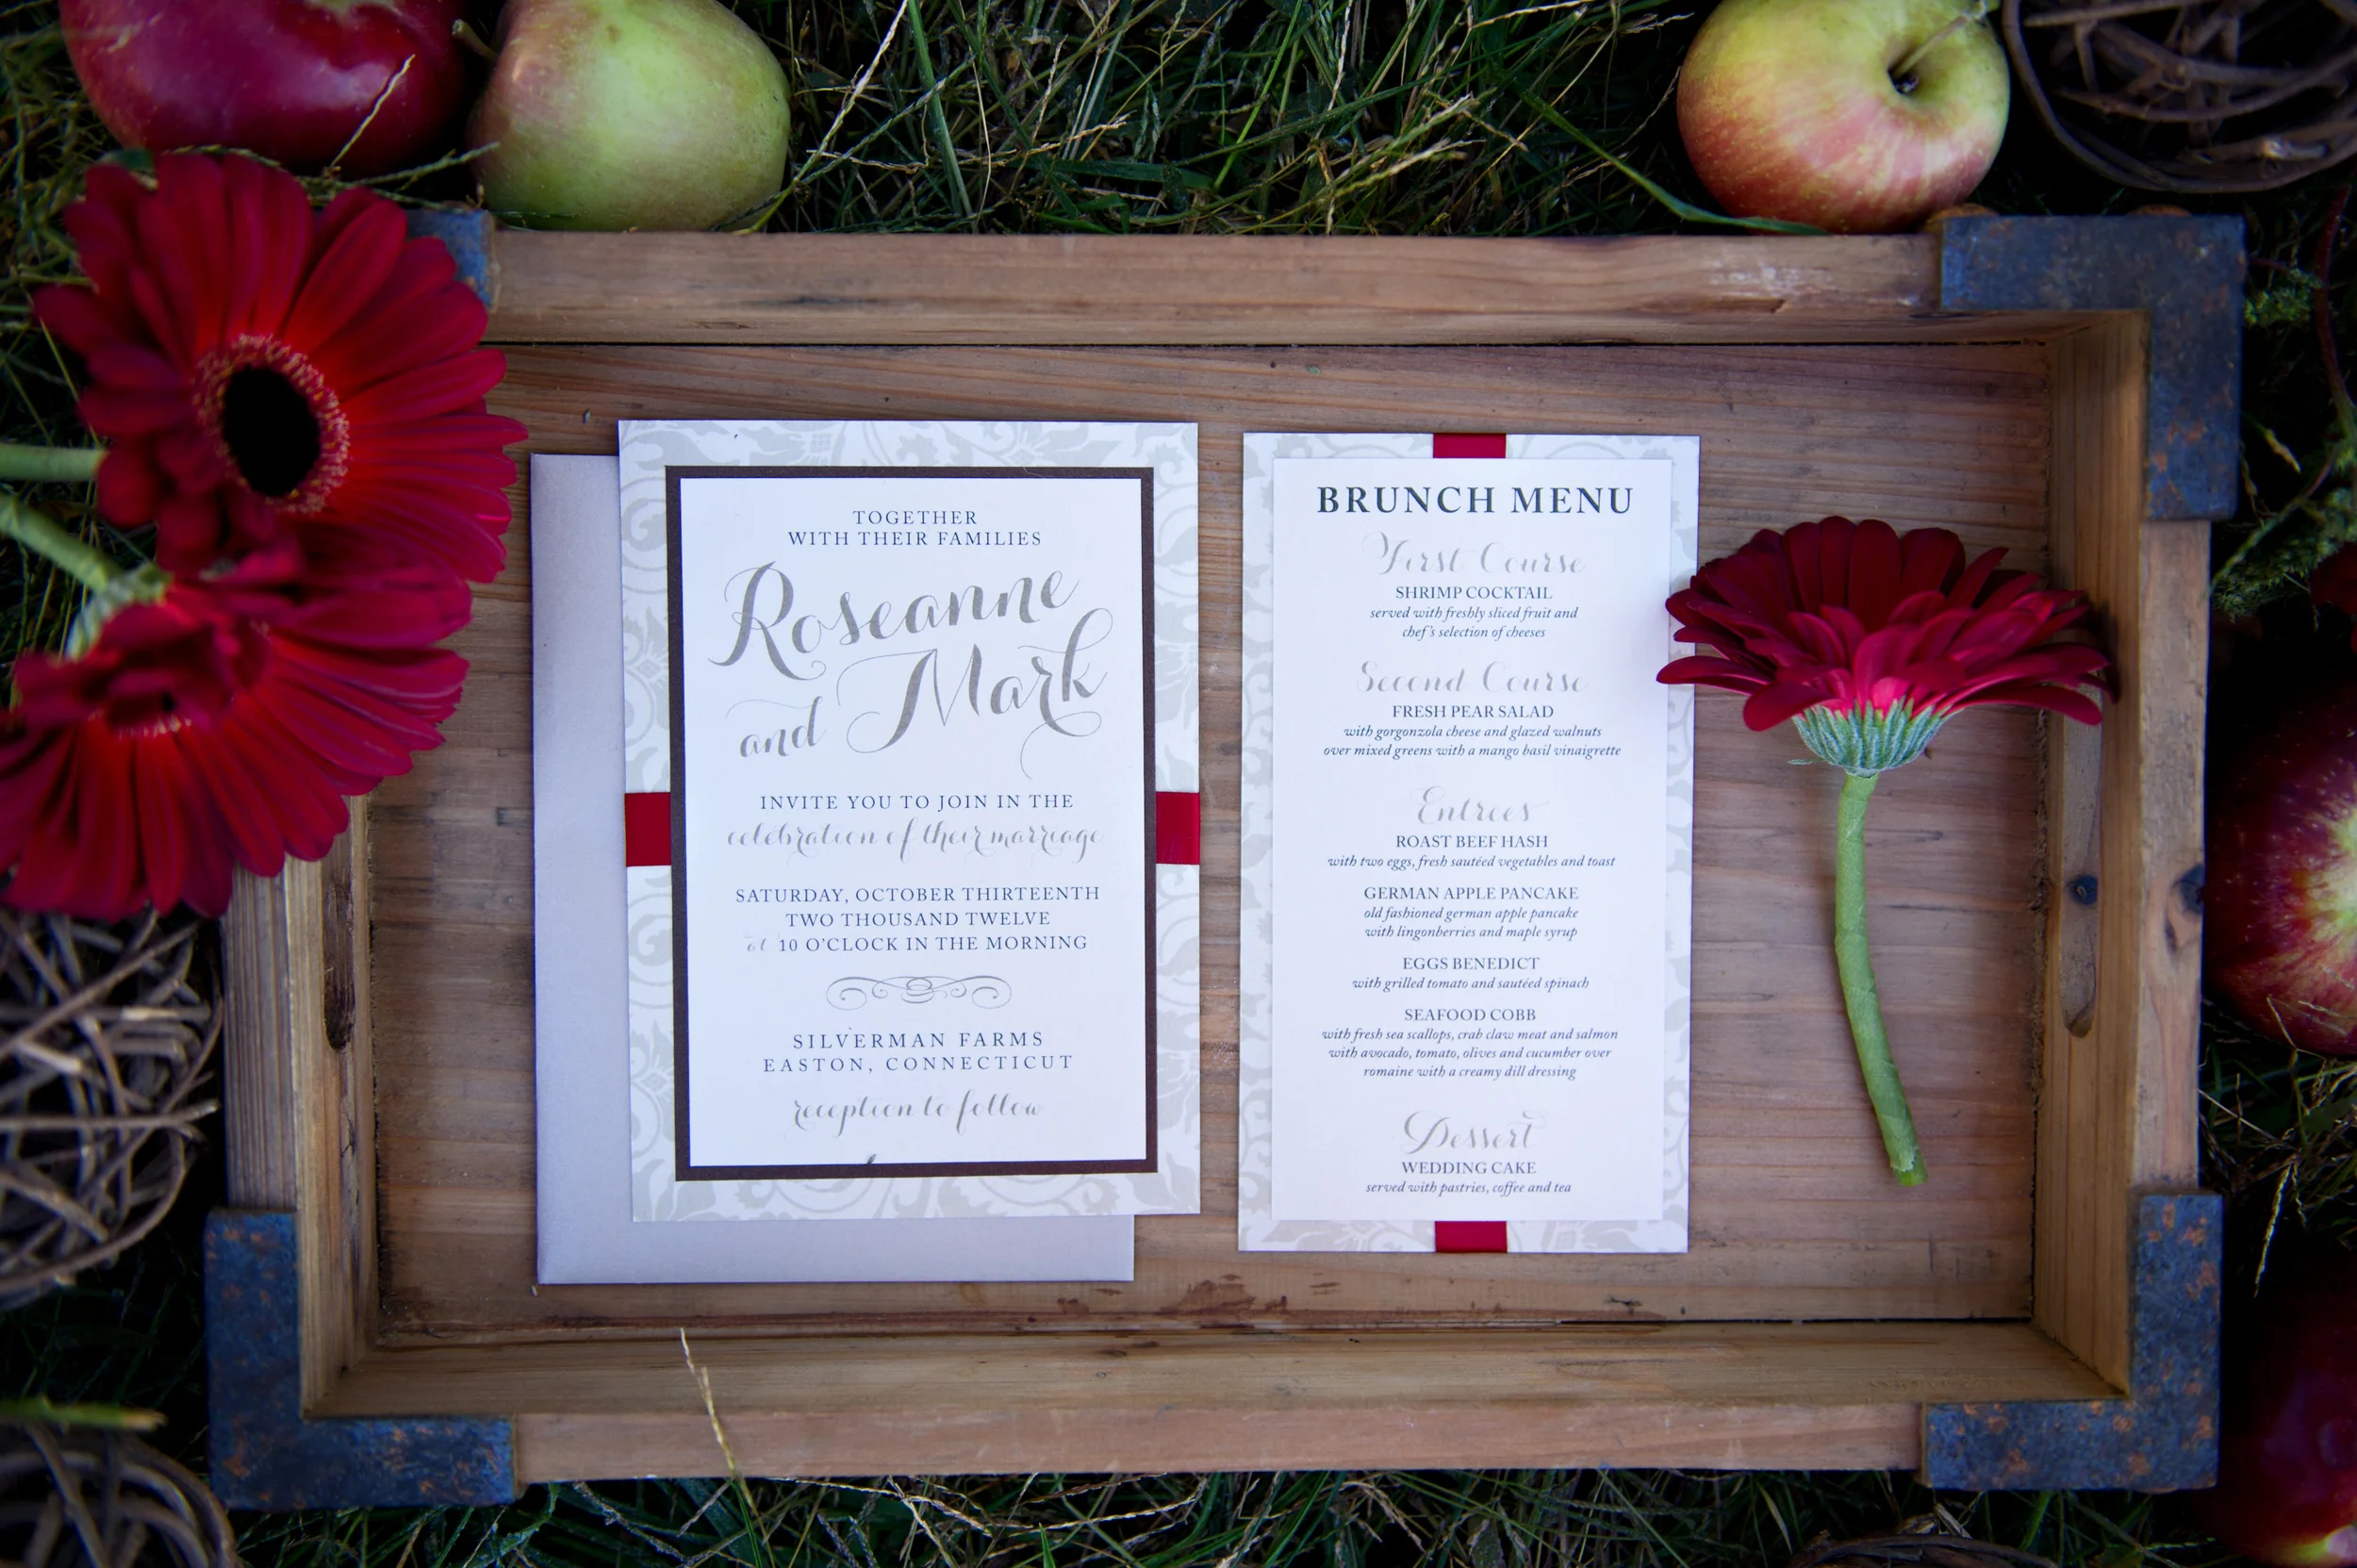 TOGETHER
WITH THEIR FAMILIES
Roseanne
and Mark
INVITE YOU TO JOIN IN THE
celebration of their marriage
SATURDAY, OCTOBER THIRTEENTH
TWO THOUSAND TWELVE
at 10 O'CLOCK IN THE MORNING
SILVERMAN FARMS
EASTON, CONNECTICUT
reception to follow
BRUNCH MENU
First Course
SHRIMP COCKTAIL
served with freshly sliced fruit and
chef's selection of cheeses
Second Course
FRESH PEAR SALAD
with gorgonzola cheese and glazed walnuts
over mixed greens with a mango basil vinaigrette
Entrees
ROAST BEEF HASH
with two eggs, fresh sautéed vegetables and toast
GERMAN APPLE PANCAKE
old fashioned german apple pancake
with lingonberries and maple syrup
EGGS BENEDICT
with grilled tomato and sautéed spinach
SEAFOOD COBB
with fresh sea scallops, crab claw meat and salmon
with avocado, tomato, olives and cucumber over
romaine with a creamy dill dressing
Dessert
WEDDING CAKE
served with pastries, coffee and tea